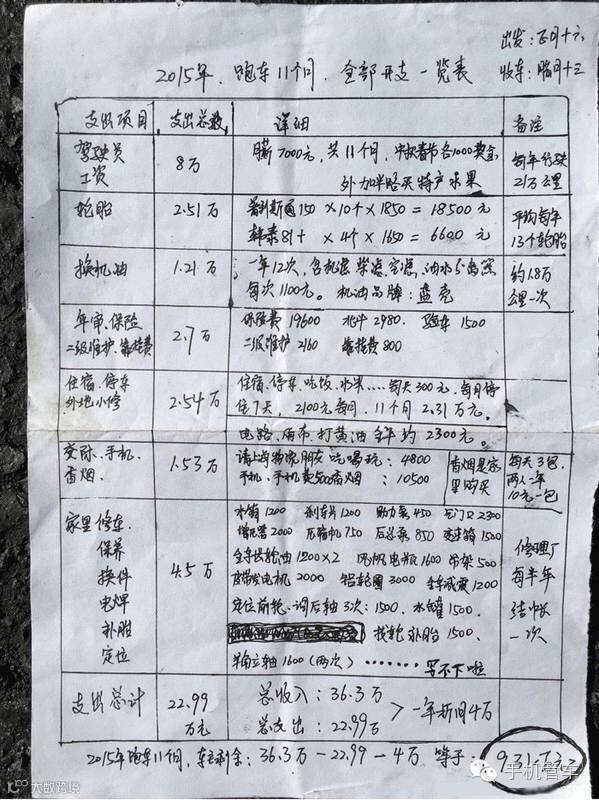 出发:正月十六
2015年、跑车11个月、全部开支一览表
收车:腊月十三
支出项目 支出总数 详细 备注
驾驶员 工资 8万
月薪7000元,共11个月,中秋春节各1000奖金
外加哈买特产水果
每年行驶 21万公里
轮胎 2.51万
普利斯通150×10个×1850=18500元
韩泰81+×4个×1650=6600元
平均每年 13个轮胎
换机油 1.21万
一年12次,含机滤柴滤空滤、油水分离器
每次1100元。机油品牌:蓝壳
约1.8万 公里一次
年审、保险 二级维护、靠挂费 2.7万
保险费19600 北斗2980、验车1500
二级维护2160 靠挂费800
住宿、停车 外地小修 2.54万
住宿、停车、吃饭、水米……每天300元,每月停
住7天,2100元每月,11个月2.31万元。
电路、雨布、打黄油全年约2300元。
交际、手机、香烟 1.53万
请上海物流朋友吃喝玩:4800
手机、手机费500香烟:10500
香烟是家里购买
每天3包、两人一年 10元一包
家里修车、保养 换件 电焊 补胎 定位 4.5万
水箱1200 刹车片1200 助力泵450 气门2300
增压器2000 压缩机750 后总泵850 变速箱1500
全车齿轮油1200×2 风机电瓶1600 吊架500
皮带发电机2000 铝轮圈3000 全车减震1200
定位前轮、调后轴3次:1500、水罐1500、
找轮补胎1500、
轴立轴1600(两次)……写不下啦
修理厂 每半年 结帐 一次
支出总计 22.99万元
总收入:36.3万
总支出:22.99万
>一年折旧4万
2015年跑车11个月,车主剩余:36.3万-22.99-4万 等于:9.31万元
大数跨境
手机管车